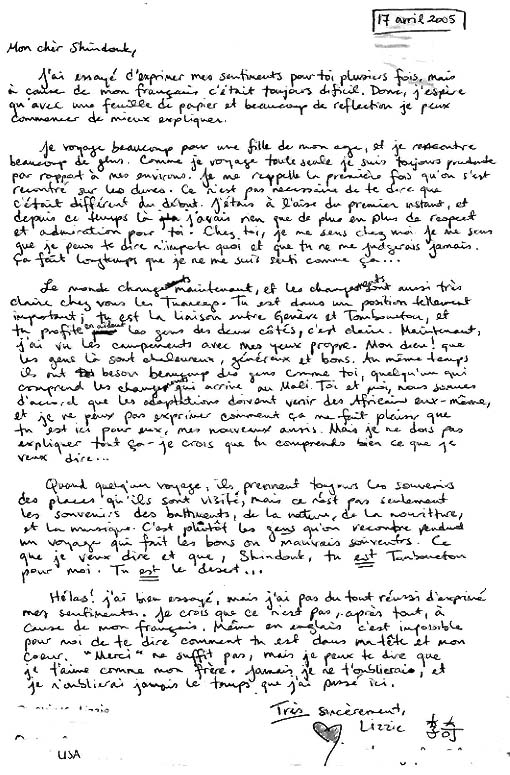 17 avril 2005
Mon chèr Shindouk,
J'ai essayé d'exprimer mes sentiments pour toi plusiers fois, mais
à cause de mon français c'était toujours dificil. Donc, j'espère
qu'avec une feuille de papier et beaucoup de reflection je peux
commencer de mieux expliquer.
Je voyage beaucoup pour une fille de mon age, et je rencontre
beaucoup de gens. Comme je voyage toute seule je suis toujours prudente
par rapport à mes environs. Je me rappelle la première fois qu'on s'est
recontré sur les dunes. Ce n'est pas necessaire de te dire que
c'était différent du début. J'étais à l'aise du premier instant, et
depuis ce temps là j'avais rien que de plus en plus de respect
et admiration pour toi. Chez toi, je me sens chez moi. Je me sens
que je peux te dire n'importe quoi et que tu ne me judgerais jamais.
Ça fait longtemps que je ne me suis senti comme ça...
Le monde change maintenant, et les changements sont aussi très
claire chez vous les Tuareg. Tu est dans un position tellement
important; tu est la liaison entre Genève et Tombouctou, et
tu profite en aidant les gens des deux côtés, c'est claire. Maintenant,
j'ai vu les campements avec mes yeux propre. Mon dieu! que
les gens là sont chaleureux, généraux et bons. Au même temps
ils ont besoin beaucoup des gens comme toi, quelqu'un qui
comprend les changements qui arrive au Mali. Toi et moi, nous sommes
d'accord que les adaptations doivent venir des Africains eux-même,
et je ne peux pas exprimer comment ça me fait plaisir que
tu est ici pour eux, mes nouveaux amis. Mais je ne dois pas
expliquer tout ça - je crois que tu comprends bien ce que je
veux dire...
Quand quelqu'un voyage, ils prennent toujours les souvenirs
des places qu'ils sont visité, mais ce n'est pas seulement
les souvenirs des battiments, de la nature, de la nourriture,
et la musique. C'est plutôt les gens qu'on recontre pendant
un voyage qui fait les bons ou mauvais souvenirs. Ce
que je veux dire et que, Shindouk, tu est Tombouctou
pour moi. Tu est le desert...
Hélas! j'ai bien essayé, mais j'ai pas du tout réussi d'exprimé
mes sentiments. Je crois que ce n'est pas, après tout, à
cause de mon français. Même en anglais c'est impossible
pour moi de te dire comment tu est dans ma tête et mon
coeur. "Merci" ne suffit pas, mais je peux te dire que
je t'aime comme mon frère. Jamais je ne t'oublierais, et
je n'oublierai jamais le temps que j'ai passé ici.
Très sincèrement,
Lizzie
USA